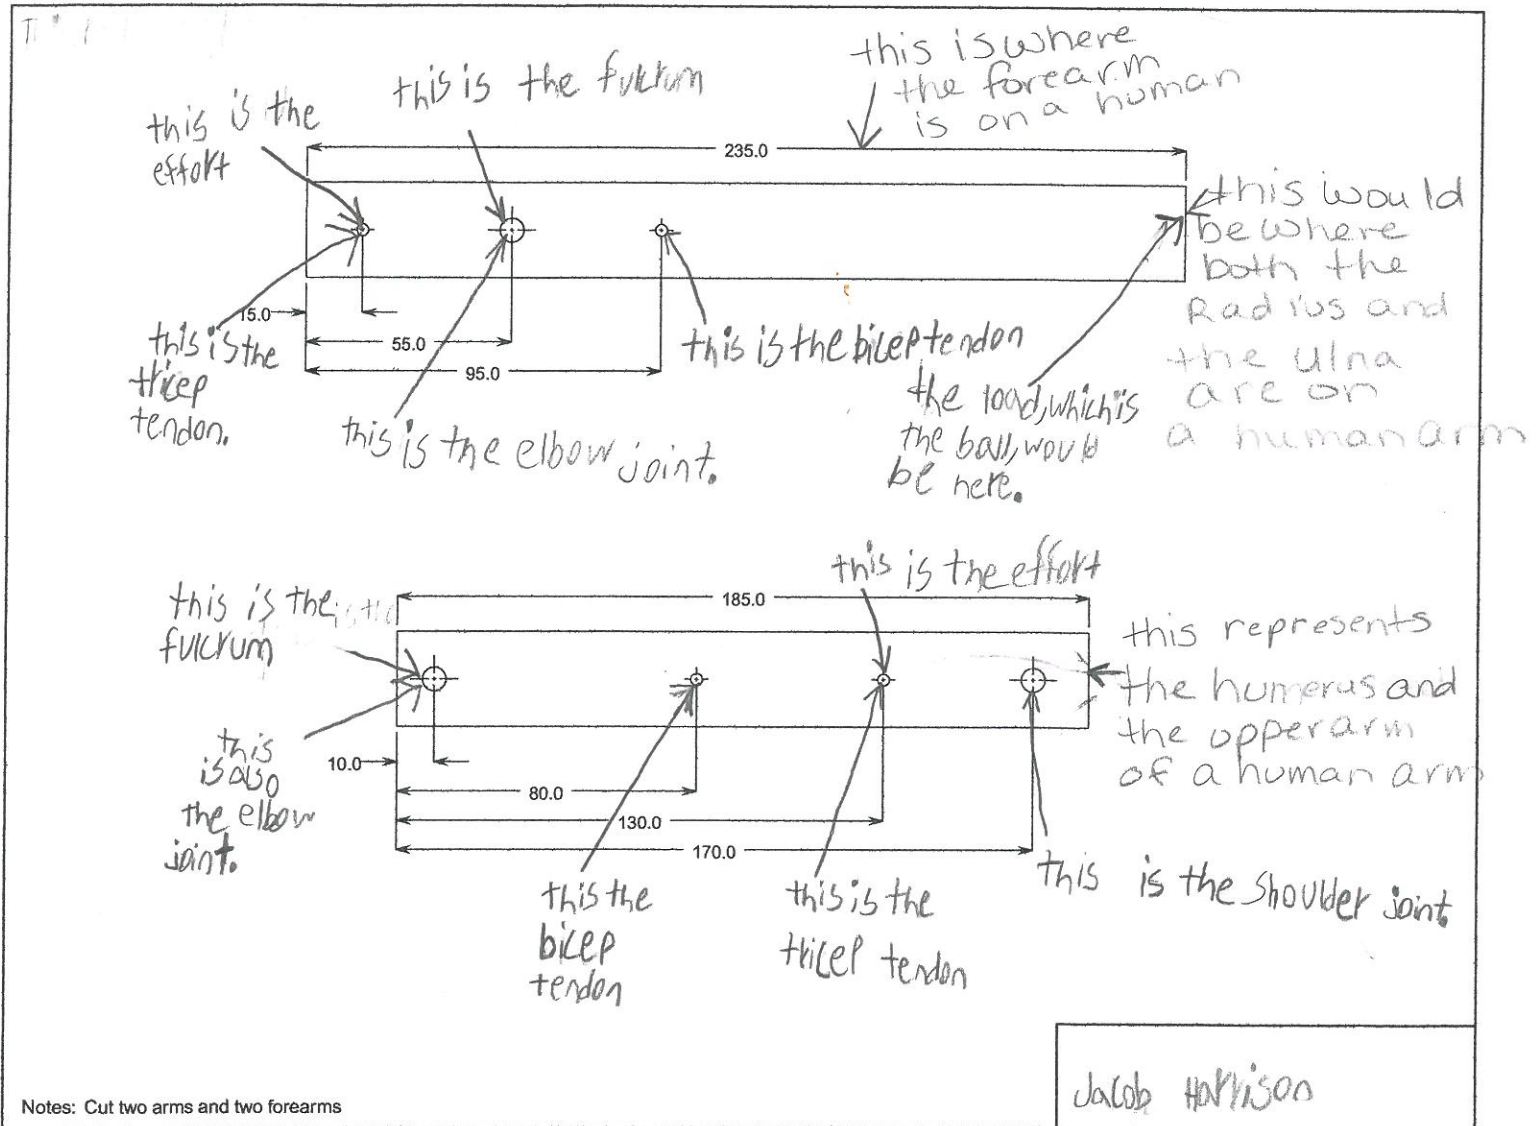 this is the fulcrum
this is where
the forearm
is on a human
this is the
effort
235.0
this would
be where
both the
Radius and
the Ulna
are on
a human arm
15.0
55.0
95.0
this is the
tricep
tendon.
this is the elbow joint.
this is the bicep tendon
the load, which is
the ball, would
be here.
this is the effort
this is the
fulcrum
185.0
this represents
the humerus and
the upper arm
of a human arm
this
is also
the elbow
joint.
10.0
80.0
130.0
170.0
this the
bicep
tendon
this is the
tricep tendon
this is the shoulder joint.
Notes: Cut two arms and two forearms
Jacob Harrison